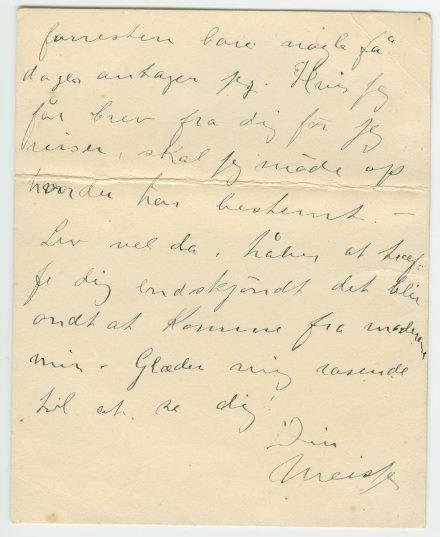 forresten bare nogle få
dager antager jeg. Hvis jeg
får brev fra dig før jeg
reiser, skal jeg møde op
hvor du har bestemt. –
Lev vel da, håber at træf-
fe dig endskjøndt det blir
ondt at komme fra moderen
min. Glæder mig rasende
til at se dig!
Din